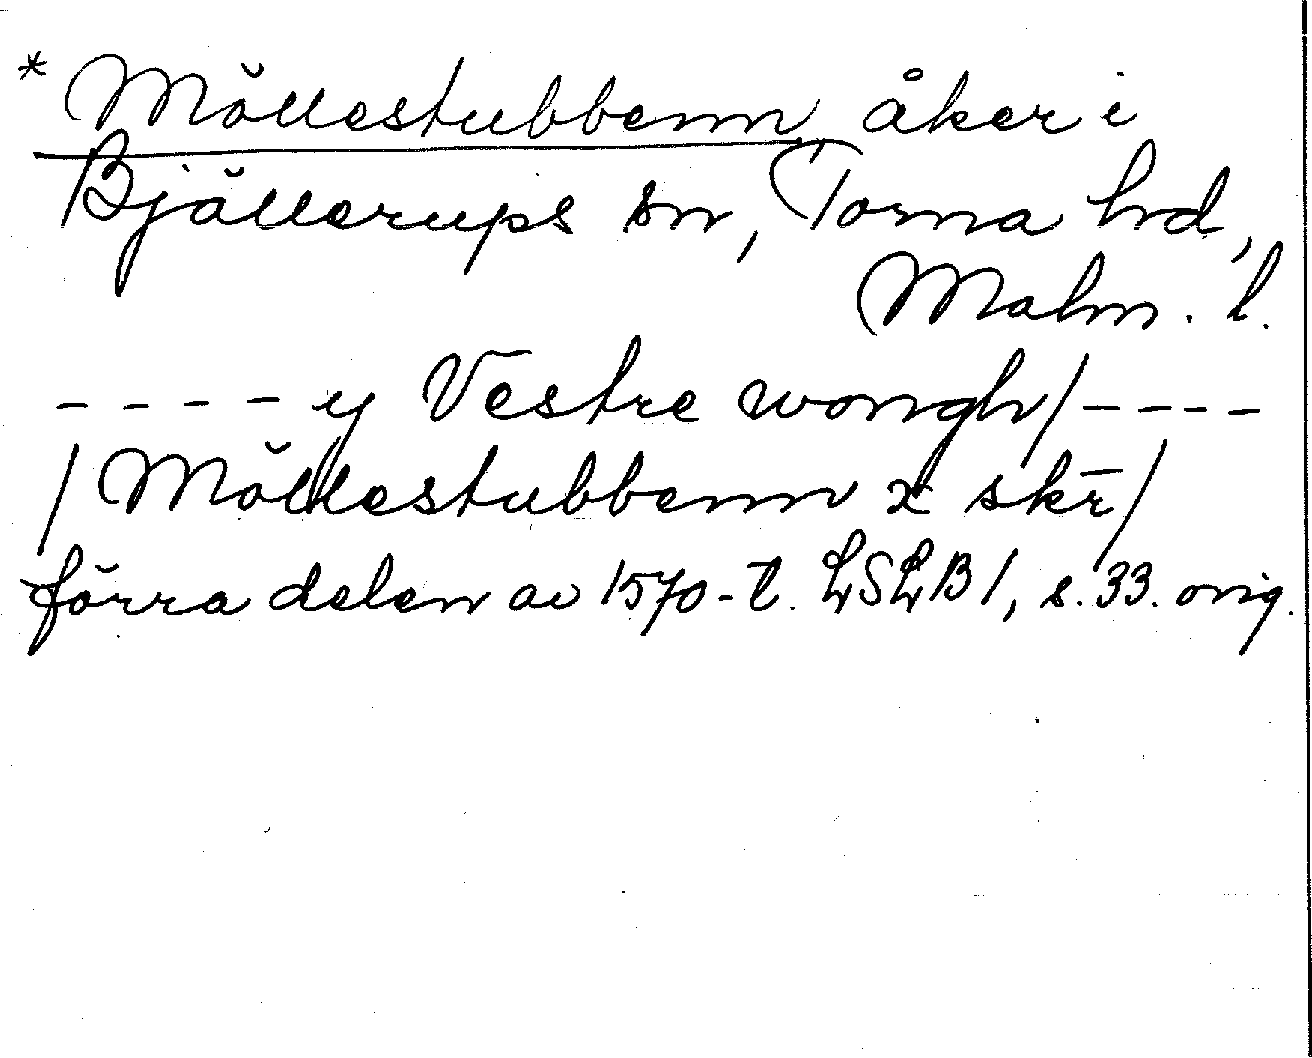 * Möllestubbenn, åker i
Bjällerups sn, Torna hd,
Malm. l.
- - - - y Vestre wongh/- - - -
/Möllestubbenn 2 skr̄/
förra delen av 1570-t. LSLB1, s. 33. orig.